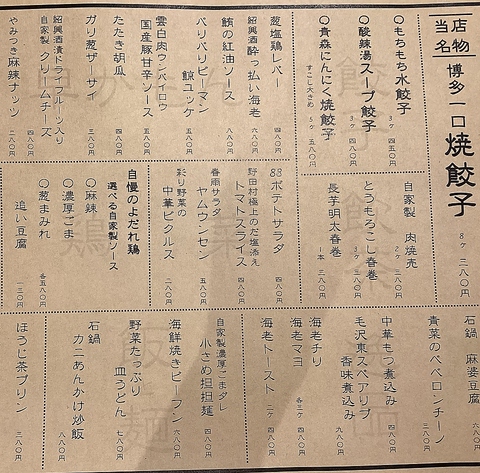 当店名物 博多一口焼餃子 8ヶ 三八〇円
〇もちもち水餃子 3ヶ 四八〇円
〇酸辣湯スープ餃子 3ヶ 四八〇円
〇青森にんにく餃子 すこし大きめ 5ヶ 五八〇円
葱塩鶏レバー 四八〇円
紹興酒酔っ払い海老 六八〇円
鮪の紅油ソース 八八〇円
バリバリピーマン 鯨ユッケ 五八〇円
雲白肉ウンパイロウ
国産豚甘辛ソース 五八〇円
たたき胡瓜 四八〇円
ガリ葱ザーサイ 三八〇円
紹興酒漬ドライフルーツ入り
自家製 クリームチーズ 四八〇円
やみつき麻辣ナッツ 二八〇円
自家製 肉焼売 2ヶ 三八〇円
とうもろこし春巻 三八〇円
長芋明太春巻 1本 三八〇円
88ポテトサラダ 四八〇円
野田村極上のだ塩添え
トマトスライス 四八〇円
春雨サラダ
ヤムウンセン 五八〇円
彩り野菜の
中華ピクルス 二八〇円
自慢のよだれ鶏
選べる自家製ソース
〇麻辣
〇濃厚ごま
〇葱まみれ 各五八〇円
追い豆腐 一三〇円
石鍋 麻婆豆腐
青菜のペペロンチーノ 三八〇円
中華もつ煮込み 四八〇円
毛沢東スペアリブ
香味煮込み 九八〇円
海老チリ
海老マヨ 各三ヶ 四八〇円
海老トースト 二ヶ 四八〇円
自家製濃厚ごまダレ
小さめ担担麺 四八〇円
海鮮焼きビーフン 六八〇円
野菜たっぷり
皿うどん 七八〇円
石鍋
カニあんかけ炒飯 八八〇円
ほうじ茶プリン 三八〇円